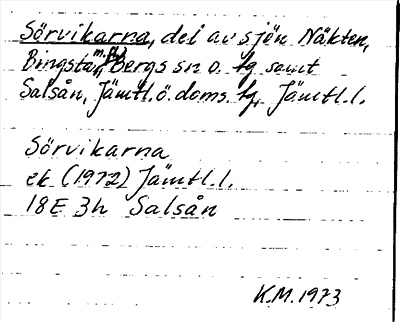 Sörvikarna, del av sjön Näkten,
Bingsta, m.fl., Bergs sn o. tg samt
Salsån, Jämtl. ö. doms. tg, Jämtl. l.
Sörvikarna
ek (1972) Jämtl. l.
18E 3h Salsån
K.M. 1973